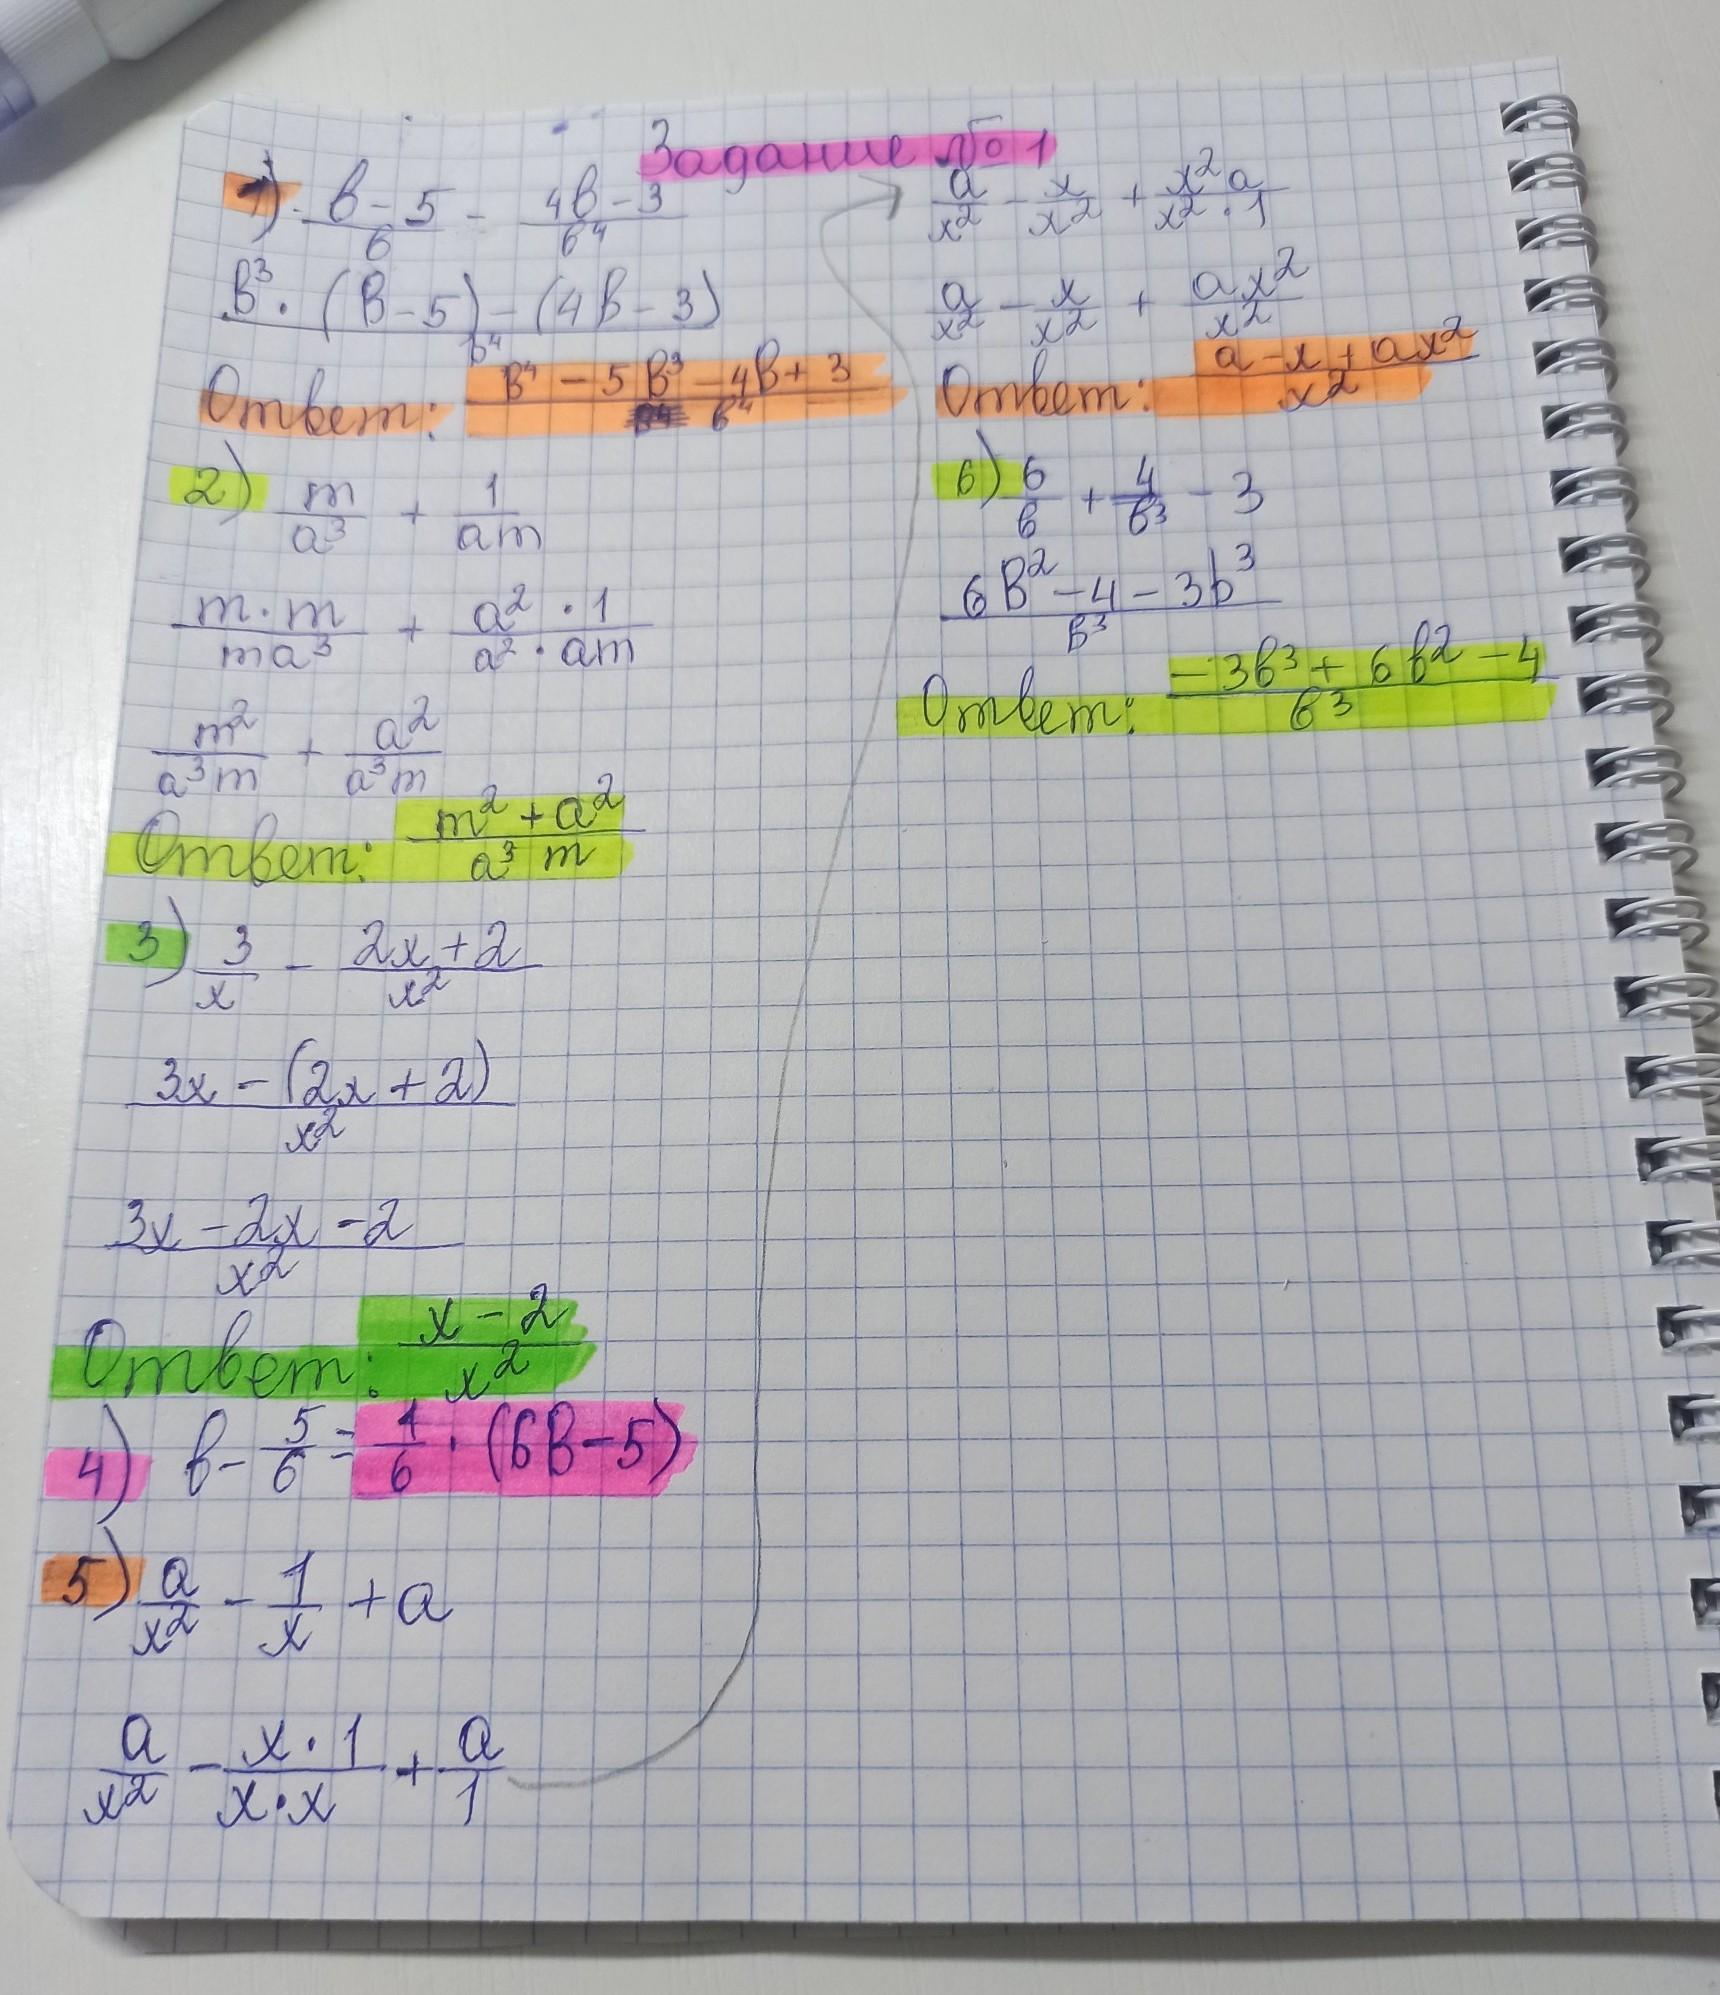 Задание №1
1) (b-5)/b - (4b-3)/b⁴
(b³·(b-5)-(4b-3))/b⁴
Ответ: (b⁴-5b³-4b+3)/b⁴
2) m/a³ + 1/am
(m·m)/(ma³) + (a²·1)/(a²·am)
m²/(a³m) + a²/(a³m)
Ответ: (m²+a²)/(a³m)
3) 3/x - (2x+2)/x²
(3x-(2x+2))/x²
(3x-2x-2)/x²
Ответ: (x-2)/x²
4) b-5/6=1/6·(6b-5)
5) a/x² - 1/x + a
a/x² - (x·1)/(x·x) + a/1
a/x² - x/x² + (x²a)/(x²·1)
a/x² - x/x² + (ax²)/x²
Ответ: (a-x+ax²)/x²
6) 6/b + 4/b³ - 3
(6b²-4-3b³)/b³
Ответ: (-3b³+6b²-4)/b³